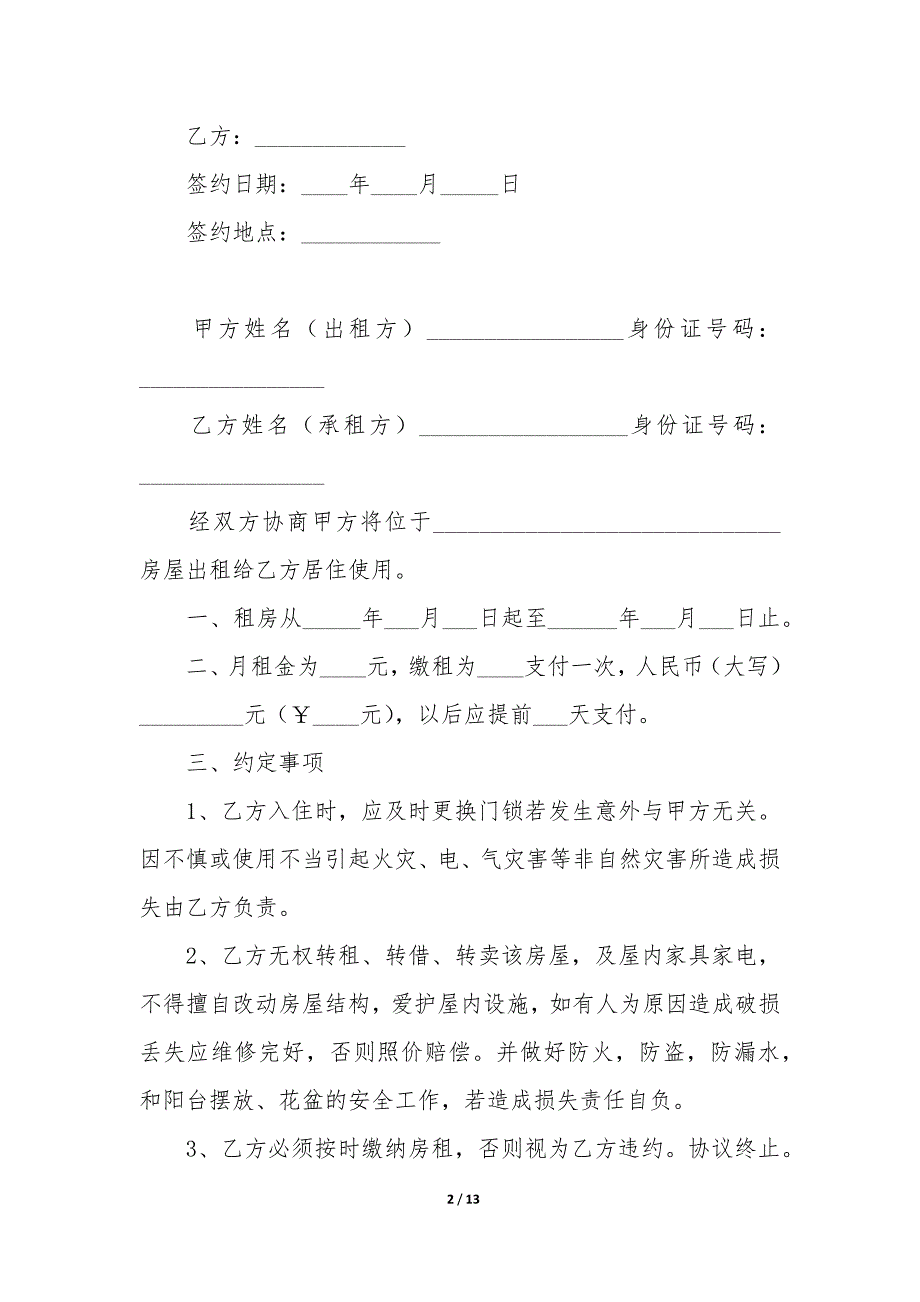 乙方：_____________
签约日期：____年____月_____日
签约地点：____________
甲方姓名（出租方）_________________身份证号码：
________________
乙方姓名（承租方）__________________身份证号码：
________________
经双方协商甲方将位于______________________________
房屋出租给乙方居住使用。
一、租房从_____年___月___日起至______年___月___日止。
二、月租金为____元，缴租为____支付一次，人民币（大写）
_________元（￥____元），以后应提前___天支付。
三、约定事项
1、乙方入住时，应及时更换门锁若发生意外与甲方无关。
因不慎或使用不当引起火灾、电、气灾害等非自然灾害所造成损
失由乙方负责。
2、乙方无权转租、转借、转卖该房屋，及屋内家具家电，
不得擅自改动房屋结构，爱护屋内设施，如有人为原因造成破损
丢失应维修完好，否则照价赔偿。并做好防火，防盗，防漏水，
和阳台摆放、花盆的安全工作，若造成损失责任自负。
3、乙方必须按时缴纳房租，否则视为乙方违约。协议终止。
2 / 13